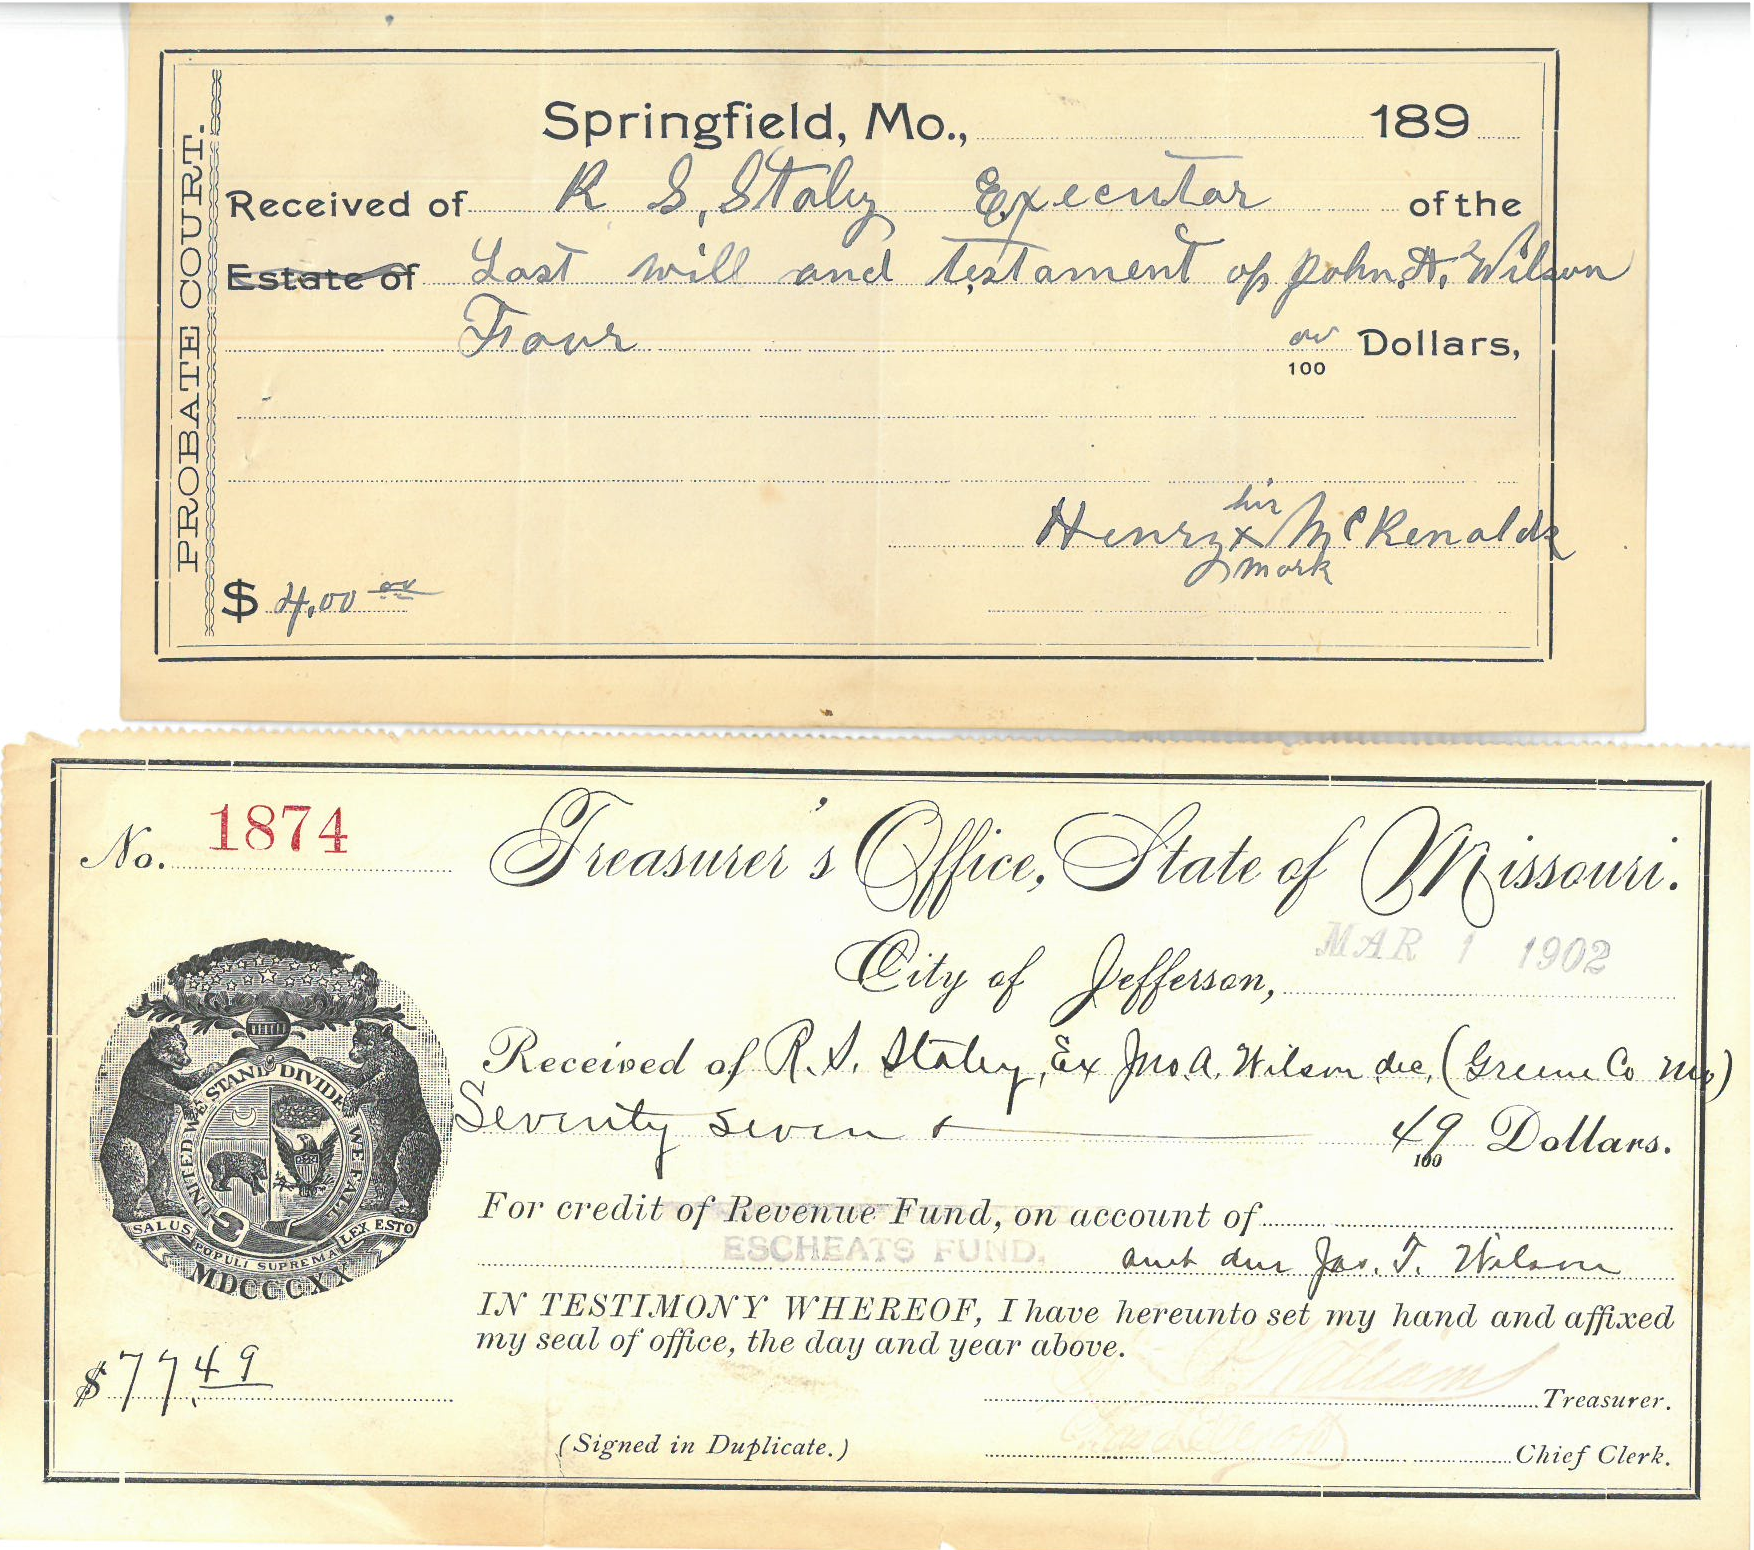 PROBATE COURT.
Springfield, Mo., 189
Received of R S, Staley Executor of the
Estate of Last will and testament of John, A, Wilson
Four 00/100 Dollars,
his
Henry x McRenalds
mark
$ 4,00 00
No. 1874
Treasurer's Office, State of Missouri.
City of Jefferson, MAR 1 1902
Received of R. S. Staley, Ex Jno. A. Wilson dec, (Greene Co Mo)
Seventy seven & 49/100 Dollars.
For credit of Revenue Fund, on account of
ESCHEATS FUND. amt due Jas. T. Wilson
UNITED WE STAND DIVIDED WE FALL
SALUS POPULI SUPREMA LEX ESTO
MDCCCXX
IN TESTIMONY WHEREOF, I have hereunto set my hand and affixed
my seal of office, the day and year above.
$77.49
Williams Treasurer.
(Signed in Duplicate.) Chief Clerk.